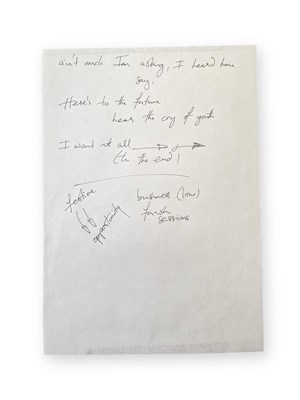 ain't much I'm asking, I heard him
say,
Here's to the future
hear the cry of youth
I want it all
(to the end)
festive
opportunity
business (low)
finish
sessions